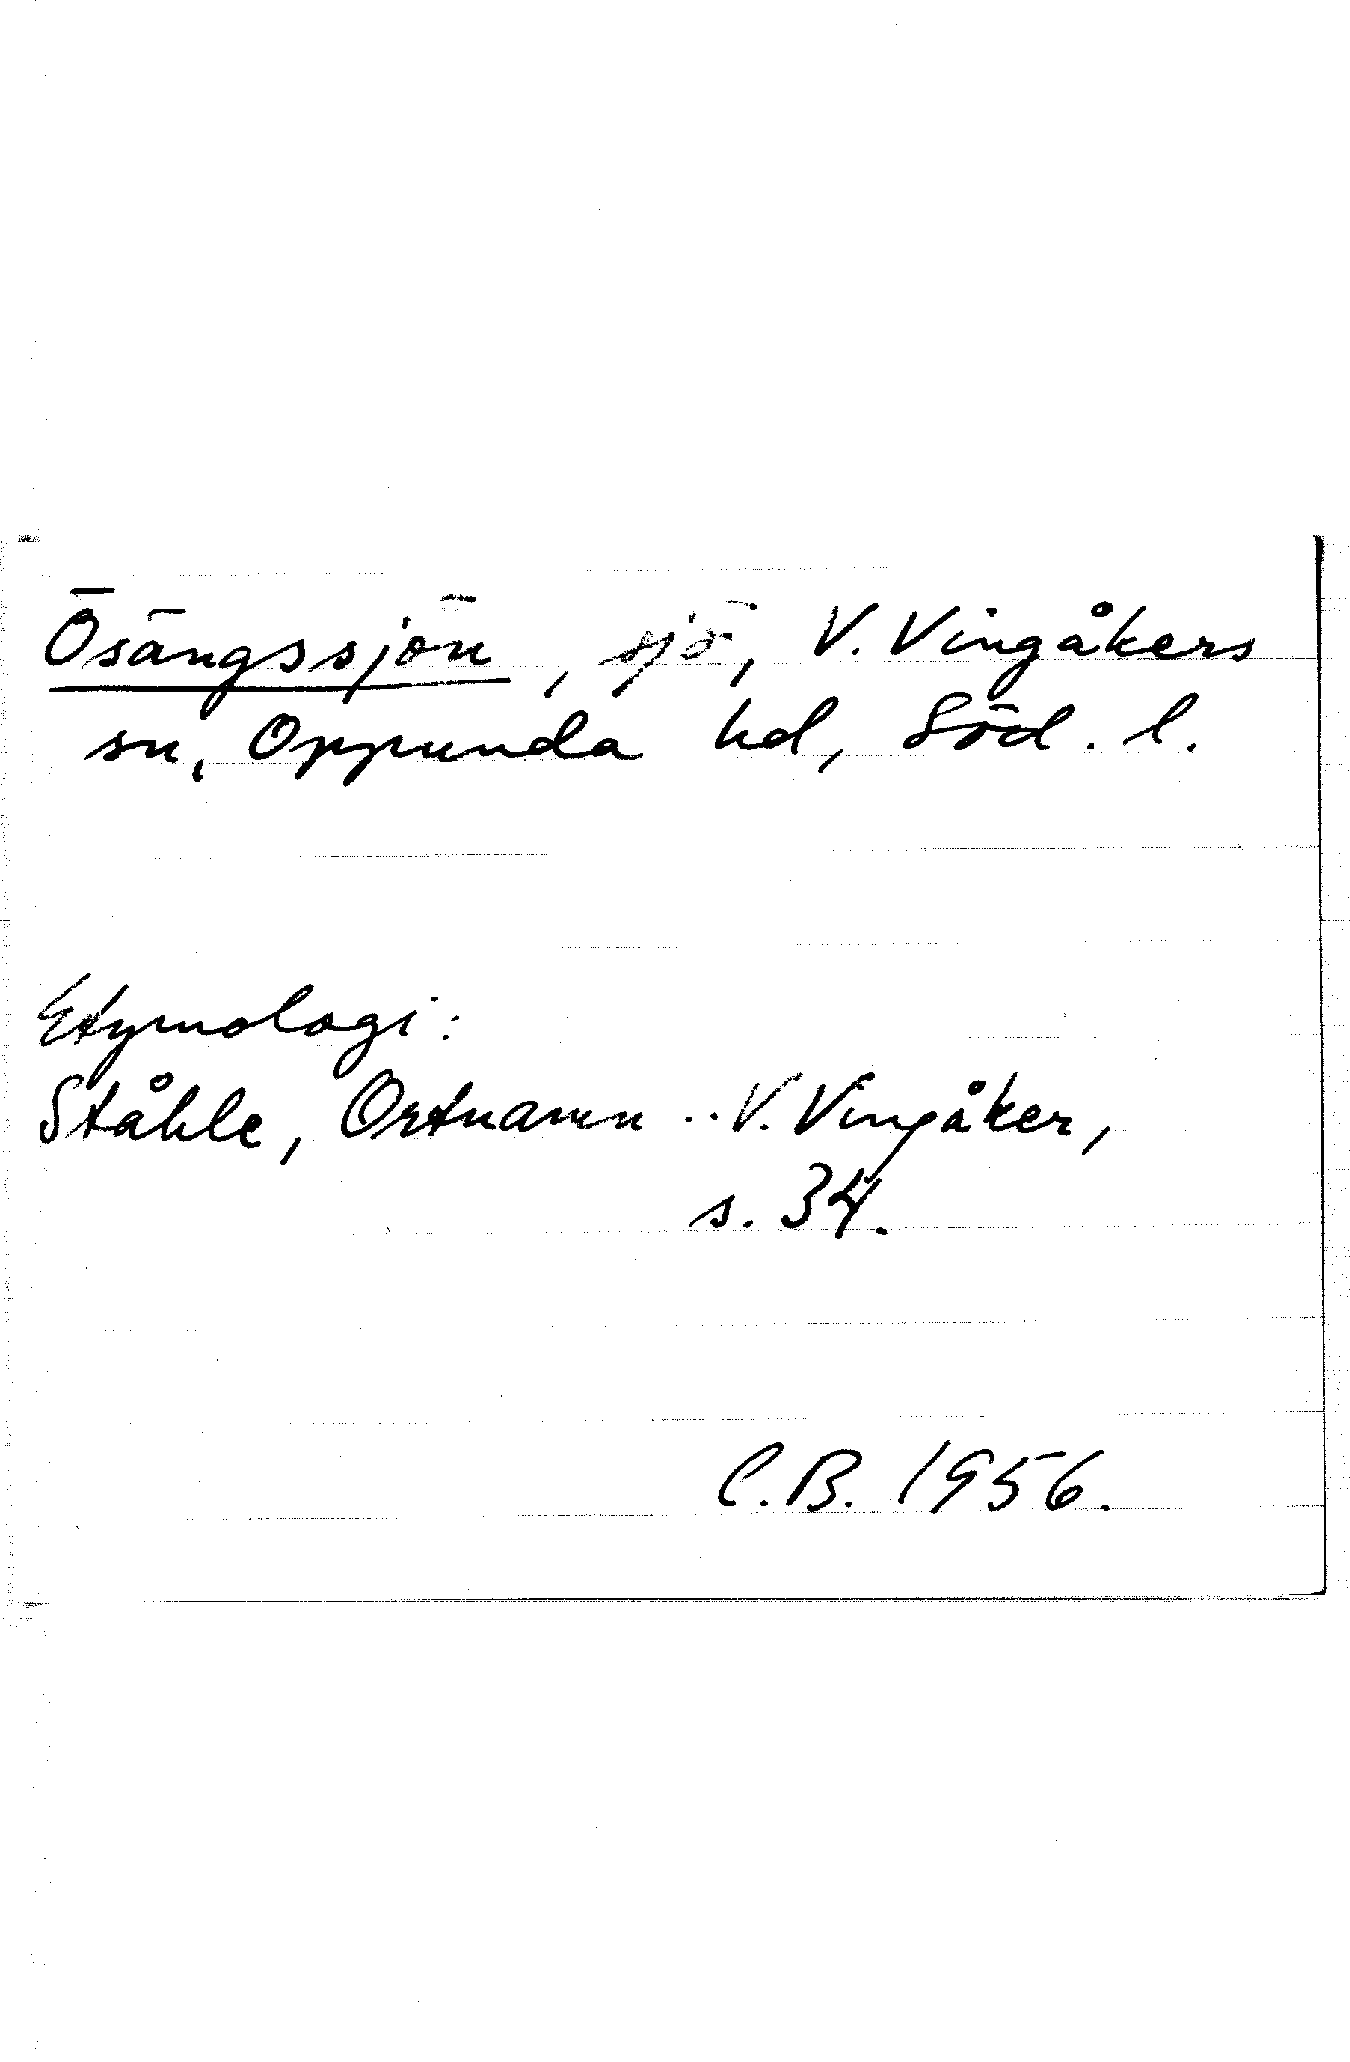 Ösängssjön, sjö, V. Vingåkers
sn, Oppunda hd, Söd. l.
Etymologi:
Ståhle, Ortnamn .. V. Vingåker,
s. 34.
C.B. 1956.